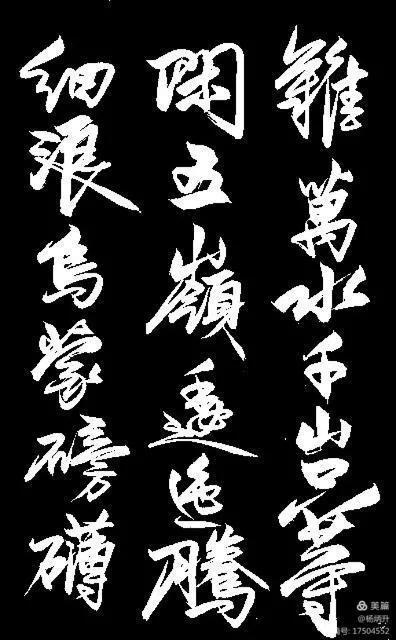 難萬水千山只等
閑五嶺逶迤騰
細浪烏蒙磅礴
美篇
@杨炳升
编号: 17504552